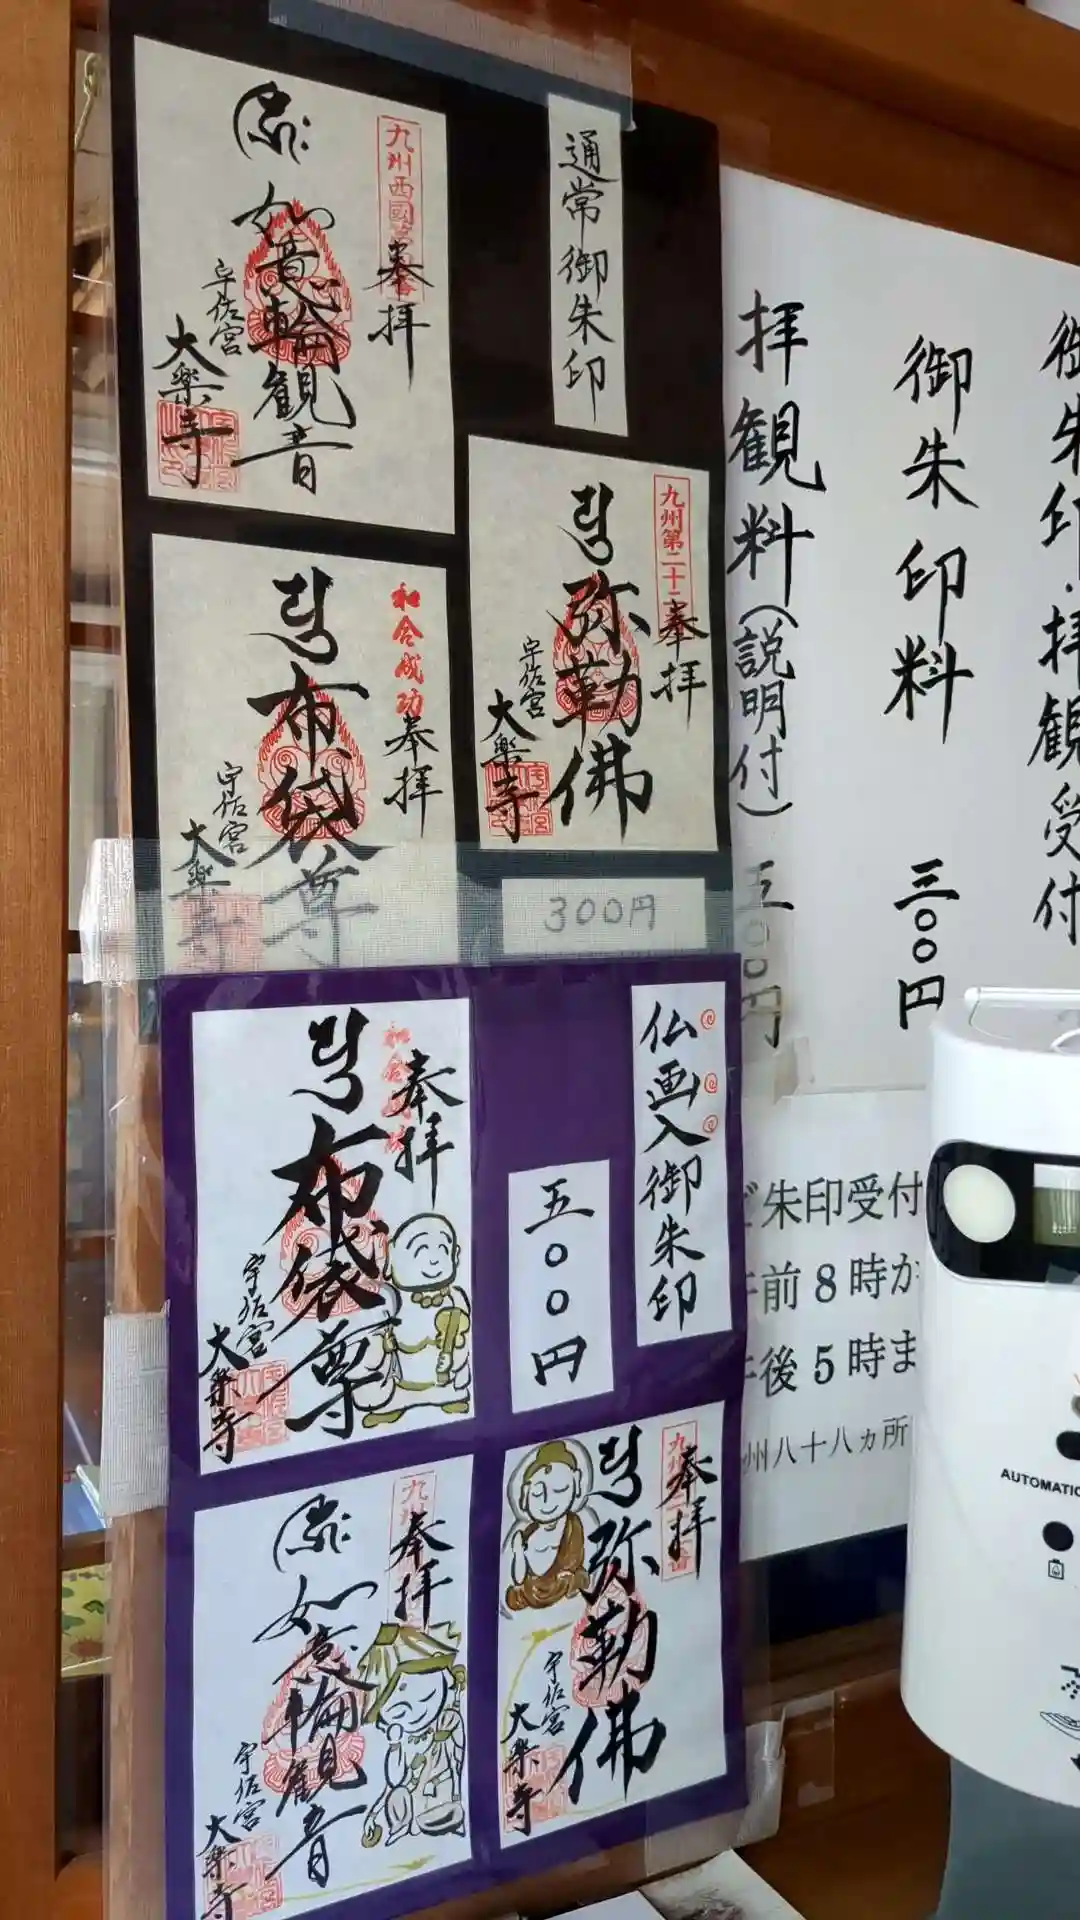 通常御朱印
九州西國
奉拝
如意輪観音
宇佐宮
大楽寺
九州第二十二
奉拝
弥勒佛
宇佐宮
大楽寺
和合成功
奉拝
布袋尊
宇佐宮
大楽寺
300円
仏画入御朱印
五〇〇円
奉拝
布袋尊
宇佐宮
大楽寺
九州
奉拝
弥勒佛
宇佐宮
大楽寺
九州
奉拝
如意輪観音
宇佐宮
大楽寺
御朱印・拝観受付
御朱印料 三〇〇円
拝観料(説明付) 五〇〇円
ご朱印受付
午前8時か
午後5時ま
州八十八ヵ所
AUTOMATIC